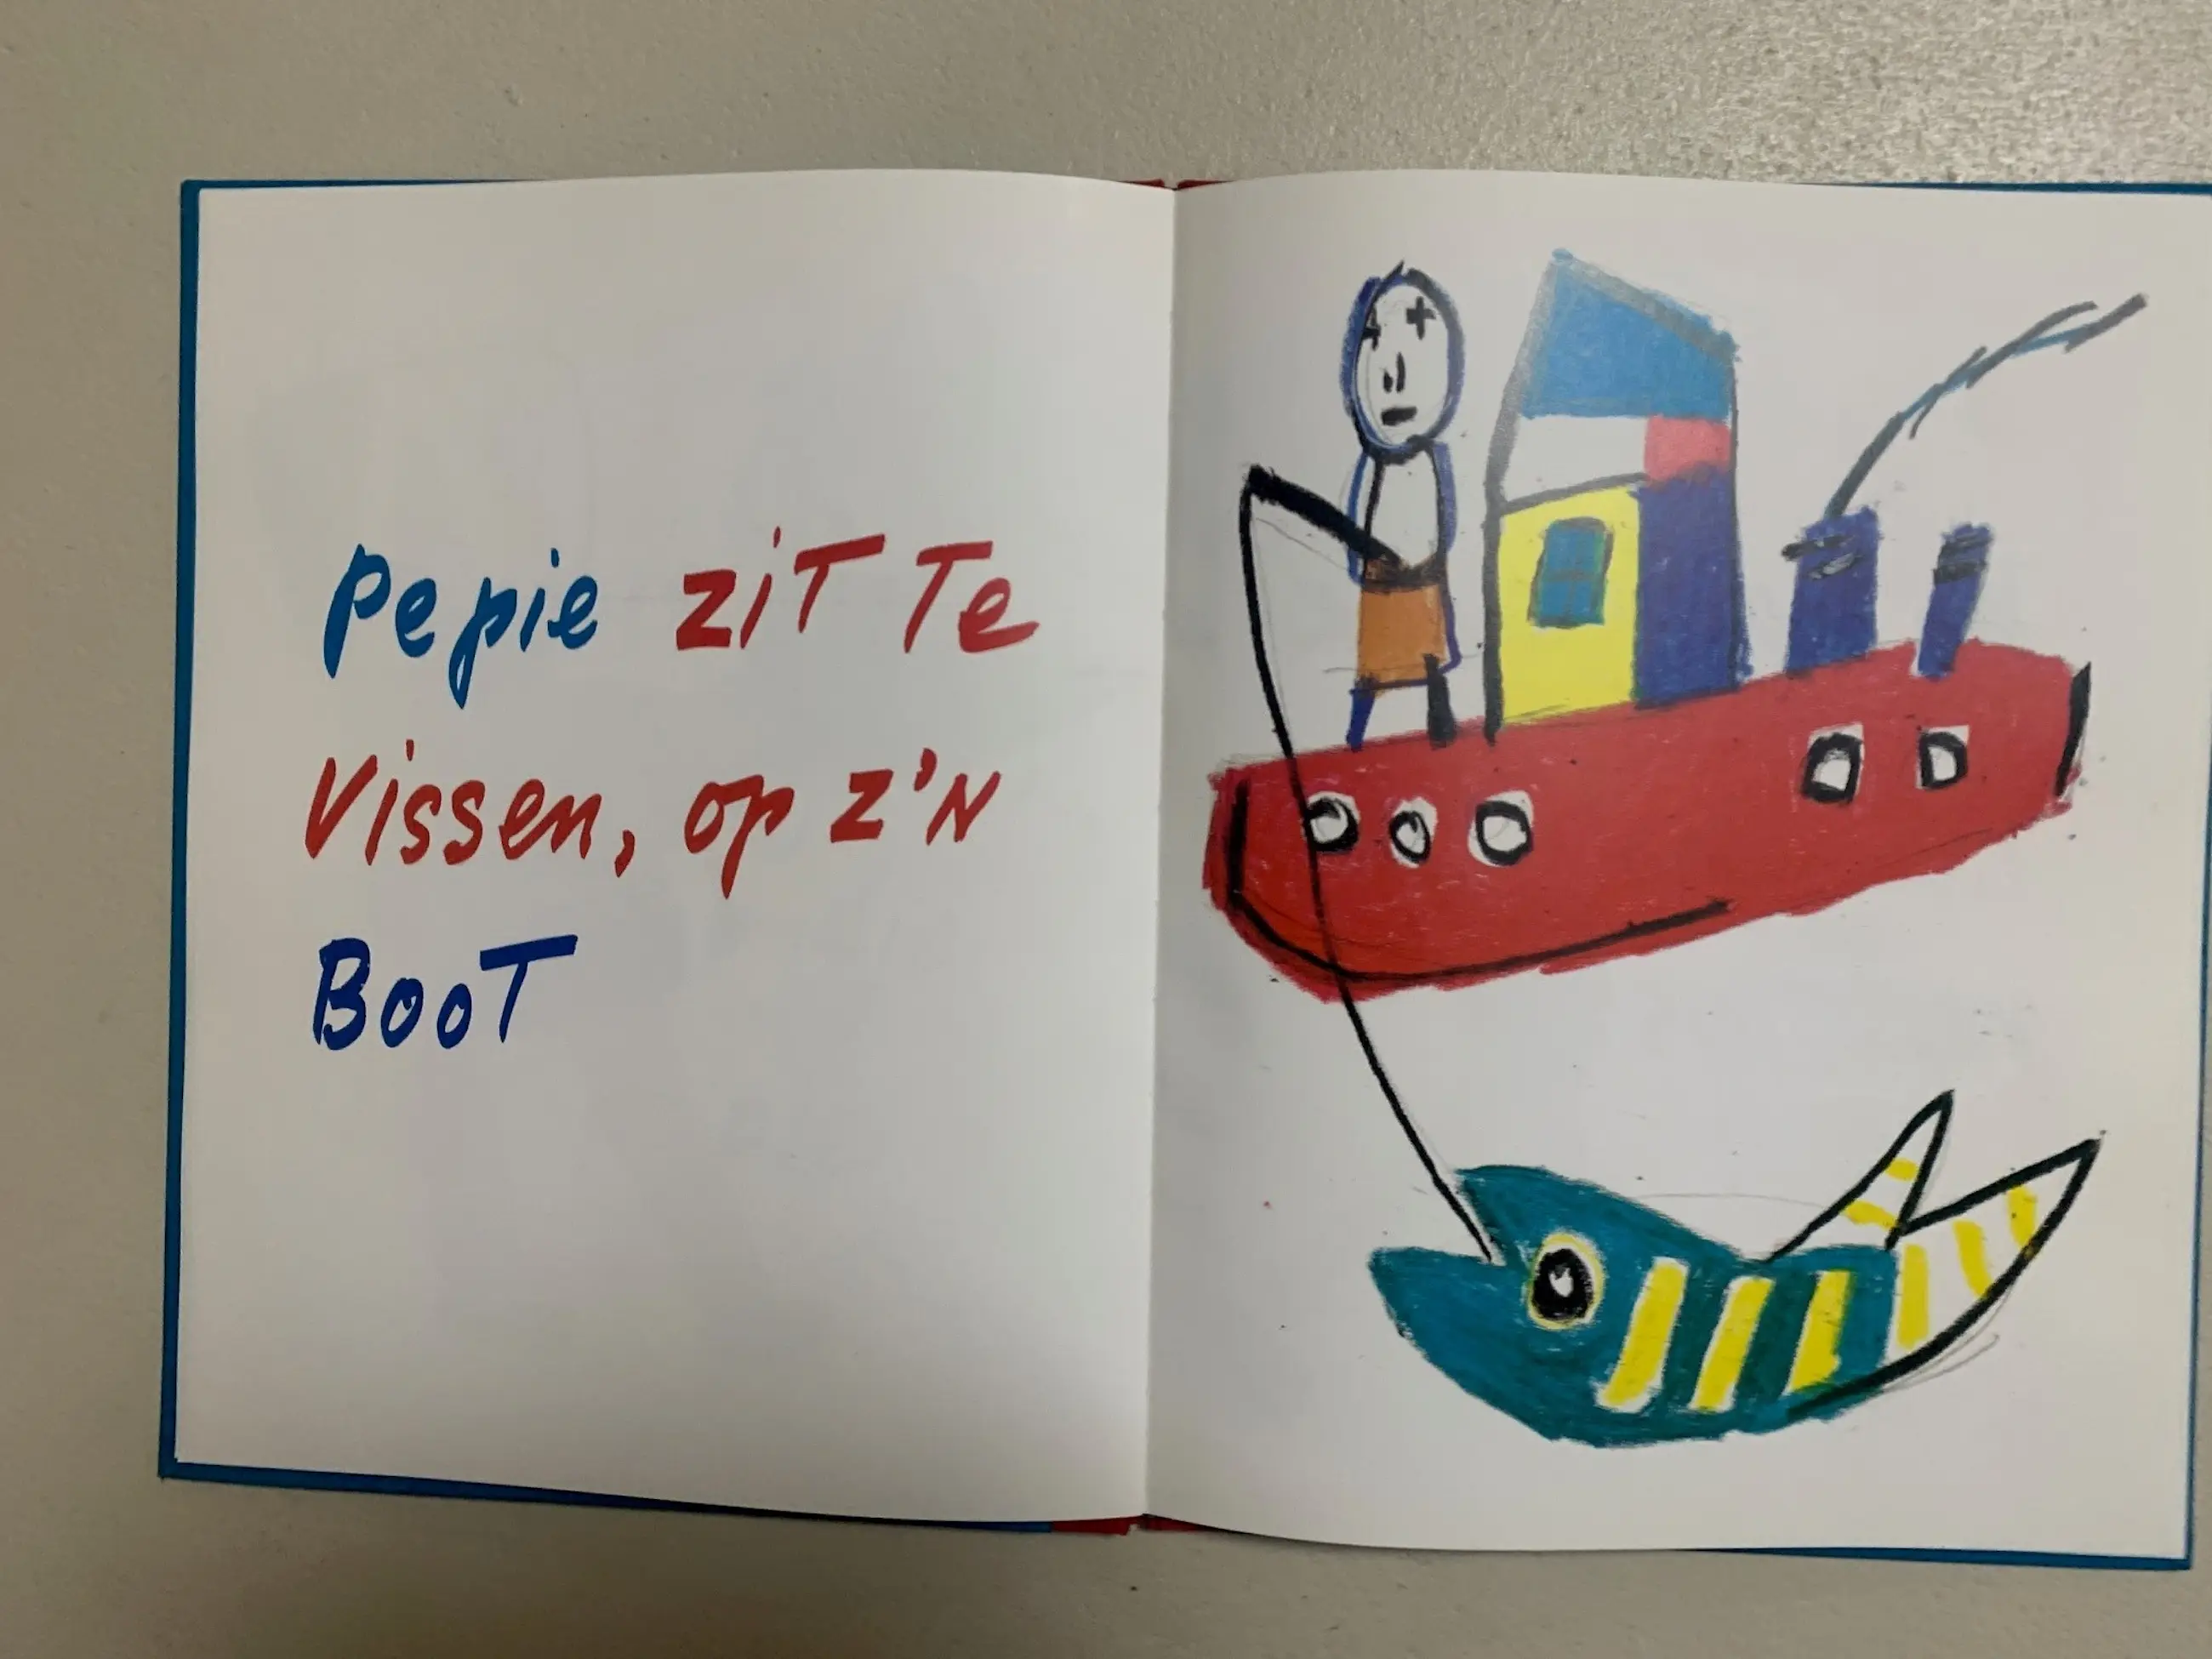 Pepie ziT Te
Vissen, op z'N
BooT